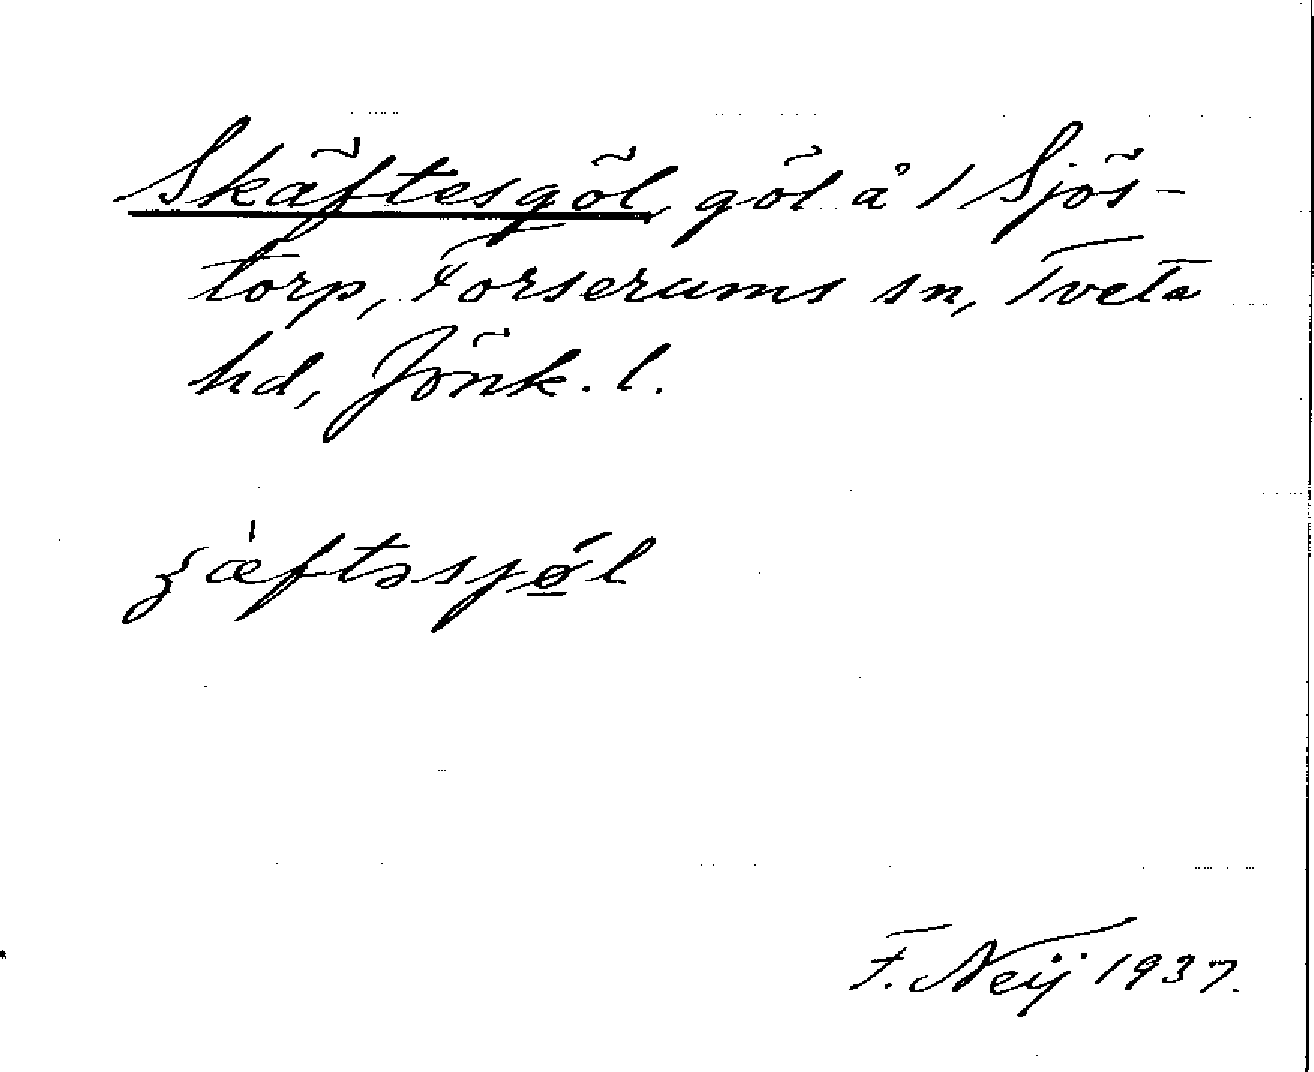 Skäftesgöl, göl å 1 Sjös-
torp, Forserums sn, Tveta
hd, Jönk. l.
ʒæ̀ftəsjǿ̲l
F. Neij 1937.